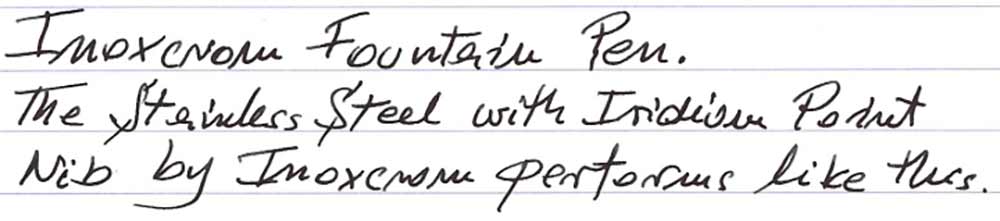 Inoxcrom Fountain Pen.
The Stainless Steel with Iridium Point
Nib by Inoxcrom performs like this.